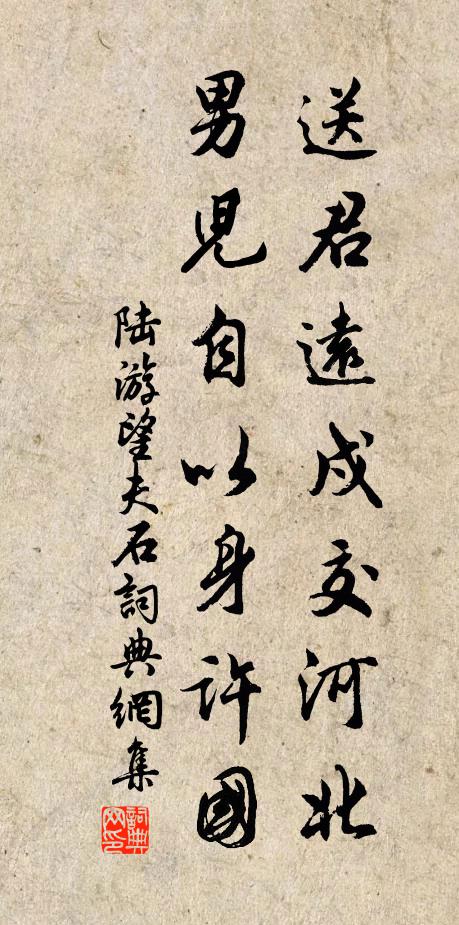 送君遠戍交河北
男児自以身許國
陸游望夫石詞典網集
詞典网印